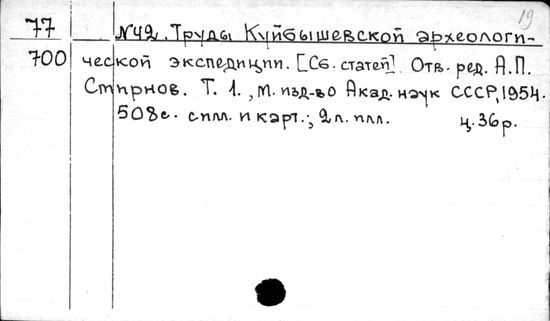 19
77 №42. Труды Куйбышевской археологи-
700 ческой экспедиции. [Сб. статей]. Отв. ред. А.П.
Смирнов. Т. 1., М. изд-во Акад. наук СССР, 1954.
508с. с илл. и карт.; 2 л. илл. ц. 36 р.